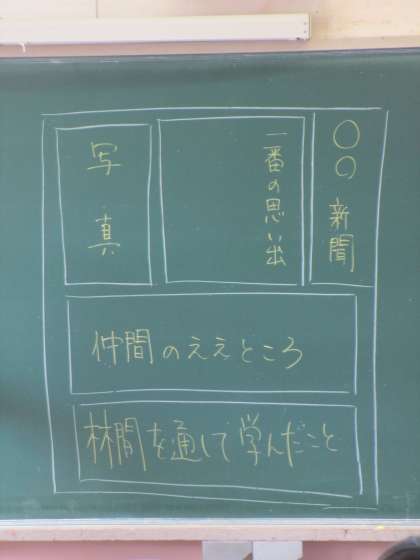 ○○新聞
一番の思い出
写真
仲間のええところ
林間を通して学んだこと